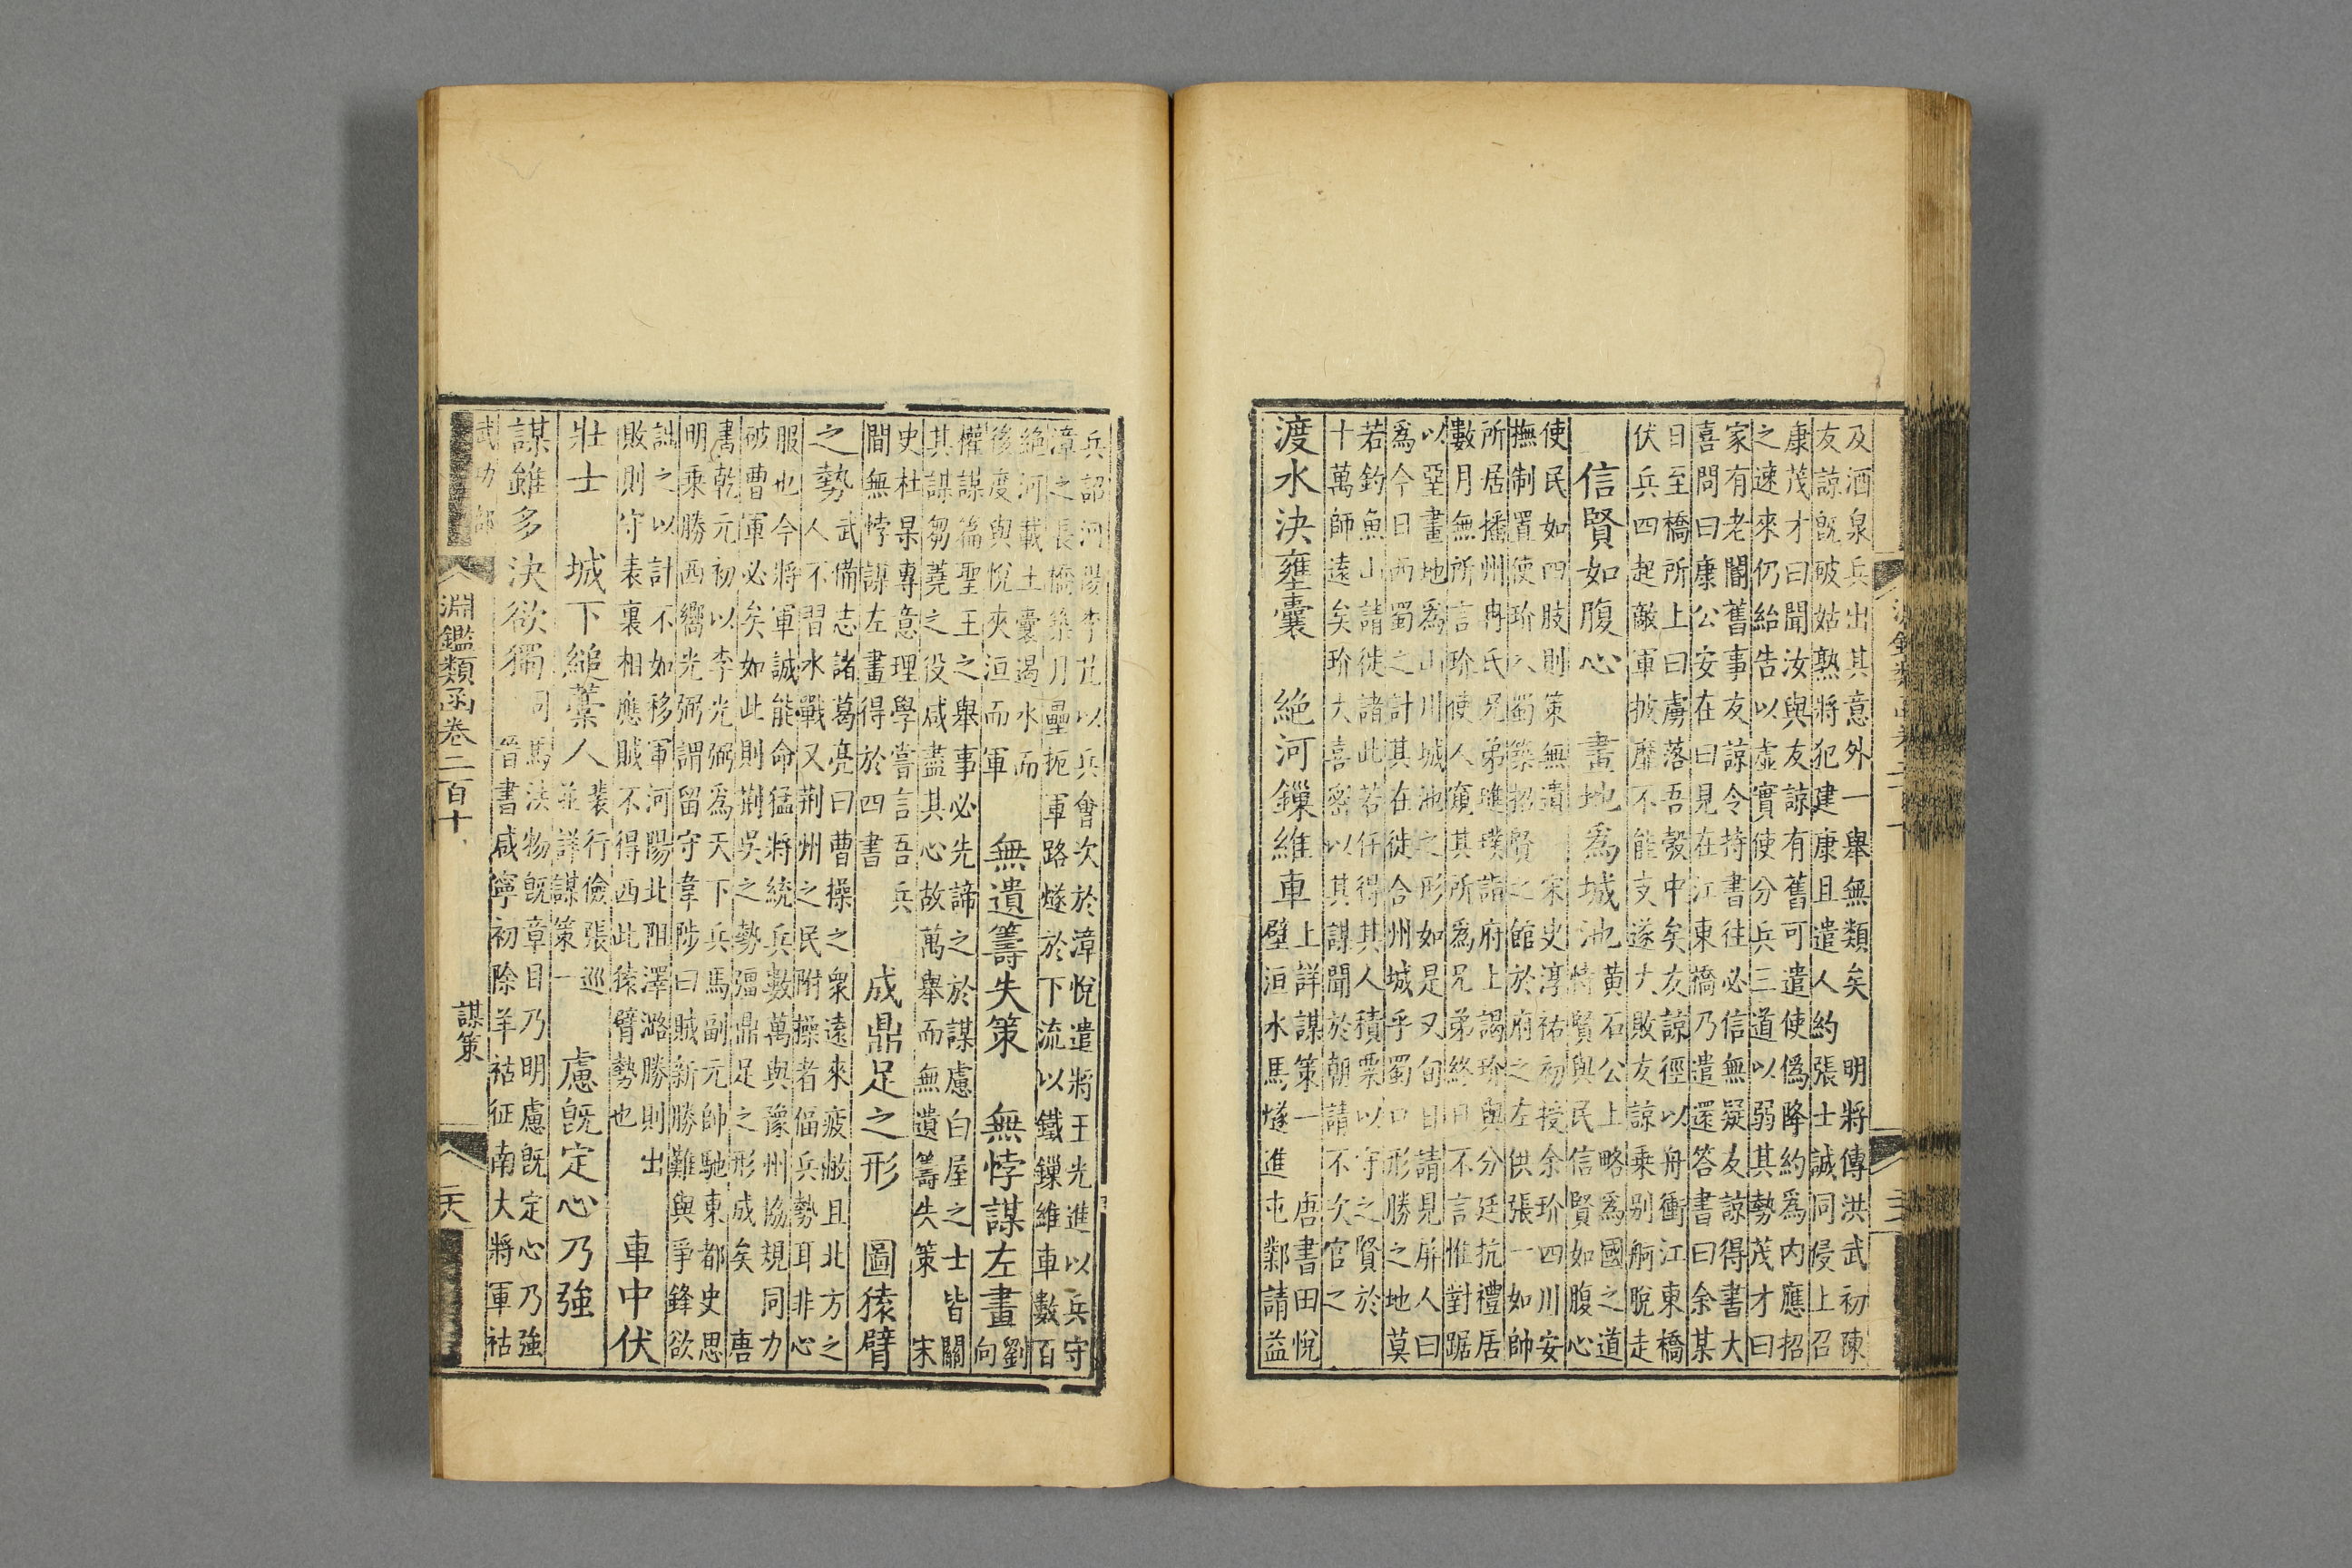 及酒泉兵出其意外一舉無類矣 明將傳洪武初陳
友諒旣破姑熟將犯建康且遣人約張士誠同侵上召
康茂才曰聞汝與友諒有舊可遣使僞降約爲内應招
之速來仍紿告以虛實使分兵三道以弱其勢茂才曰
家有老閽舊事友諒令持書往必信無疑友諒得書大
喜問曰康公安在曰見在江東橋乃遣還答書曰余某
日至橋所上曰虜落吾彀中矣友諒徑以舟衝江東橋
伏兵四起敵軍披靡不能支遂大敗友諒乘別舸脫走
信賢如腹心 黃石公上略爲國之道
恃賢與民信賢如腹心
使民如四肢則策無遺
畫地爲城池 宋史淳祐初授余玠四川安
撫制置使玠入蜀築招賢之館於府之左供張一如帥
所居播州冉氏兄弟璡璞詣府上謁玠與分廷抗禮居
數月無所言玠使人窺其所爲兄弟終日不言惟對踞
以堊畫地爲山川城池之形如是又旬日請見屏人曰
爲今日西蜀之計其在徙合州城乎蜀口形勝之地莫
若釣魚山請徙諸此若任得其人積粟以守之賢於
十萬師遠矣玠大喜密以其謀聞於朝請不次官之
渡水決壅囊 絕河鏁維車 上詳謀策一 唐書田悅
壁洹水馬燧進屯鄴請益
兵詔河陽李芃以兵會次於漳悅遣將王光進以兵守
漳之長橋築月壘扼軍路燧於下流以鐵鏁維車數百
絕河載土囊遏水而
後度與悅夾洹而軍
無遺籌失策 無悖謀左畫 劉
向
權謀篇聖王之舉事必先諦之於謀慮白屋之士皆關
其謀芻蕘之役咸盡其心故萬舉而無遺籌失策 宋
史杜杲專意理學嘗言吾兵
間無悖謀左畫得於四書
成鼎足之形 圖猿臂
之勢 武備志諸葛亮曰曹操之衆遠來疲敝且北方之
人不習水戰又荆州之民附操者偪兵勢耳非心
服也今將軍誠能命猛將統兵數萬與豫州協規同力
破曹軍必矣如此則荆吳之勢彊鼎足之形成矣 唐
書乾元初以李光弼爲天下兵馬副元帥馳東都史思
明乘勝西嚮光弼謂留守韋陟曰賊新勝難與爭鋒欲
詘之以計不如移軍河陽北阻澤潞勝則出
敗則守表裏相應賊不得西此猿臂勢也
車中伏
壯士 城下縋藁人 裴行儉張巡
並詳謀策一
慮旣定心乃強
謀雖多決欲獨 司馬法物旣章目乃明慮旣定心乃強
晉書咸寧初除羊祜征南大將軍祜
武功部
淵鑑類函卷二百十
謀策